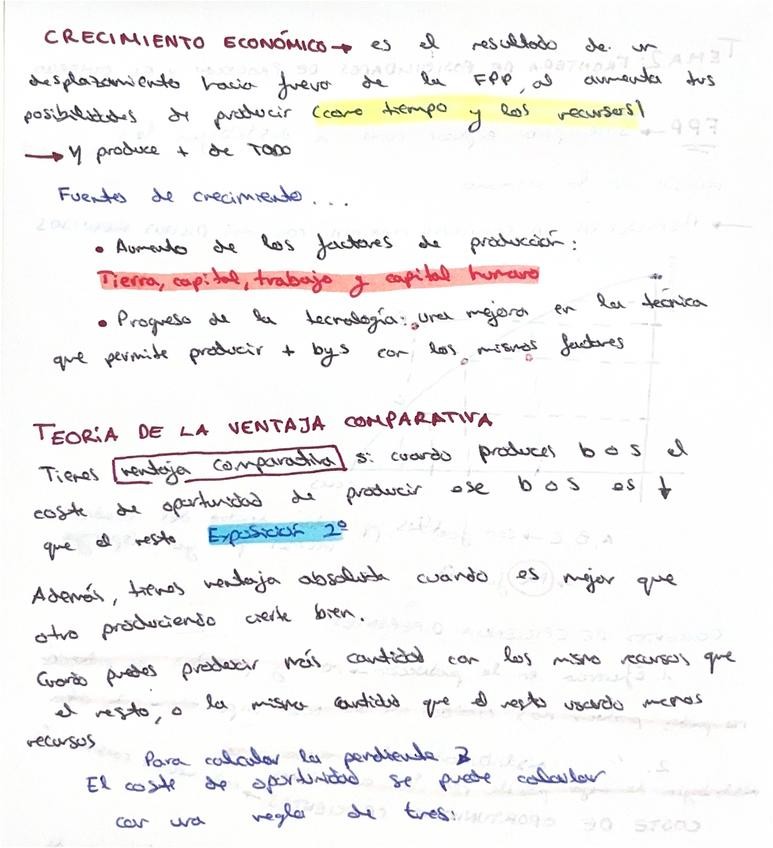 CRECIMIENTO ECONÓMICO → es el resultado de un
desplazamiento hacia fuera de la FPP, al aumenta tus
posibilidades de producir (como tiempo y los recursos)
→ Y produce + de TODO
Fuentes de crecimiento...
• Aumento de los factores de producción:
Tierra, capital, trabajo y capital humano
• Progreso de la tecnología: una mejora en la técnica
que permite producir + bys con los mismos factores
TEORÍA DE LA VENTAJA COMPARATIVA
Tienes ventaja comparativa si cuando produces b o s el
coste de oportunidad de producir ese b o s es ↓
que el resto Exposición 2º
Además, tienes ventaja absoluta cuando es mejor que
otro produciendo cierte bien.
Cuando puedes producir más cantidad con los mismo recursos que
el resto, o la misma cantidad que el resto usando menos
recursos
Para calcular la pendiente
El coste de oportunidad se puede calcular
con una regla de tres: